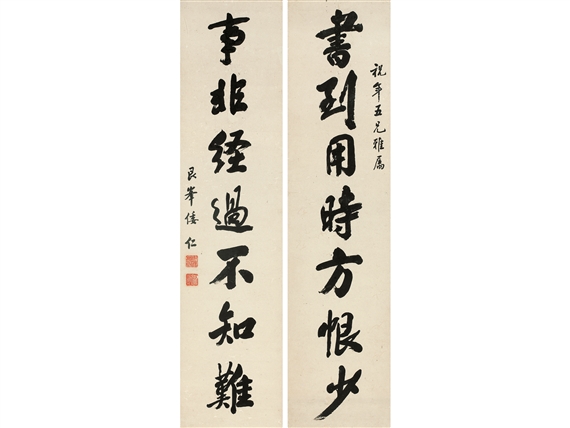 書到用時方恨少
祝年五兄雅屬
事非經過不知難
艮峯倭仁